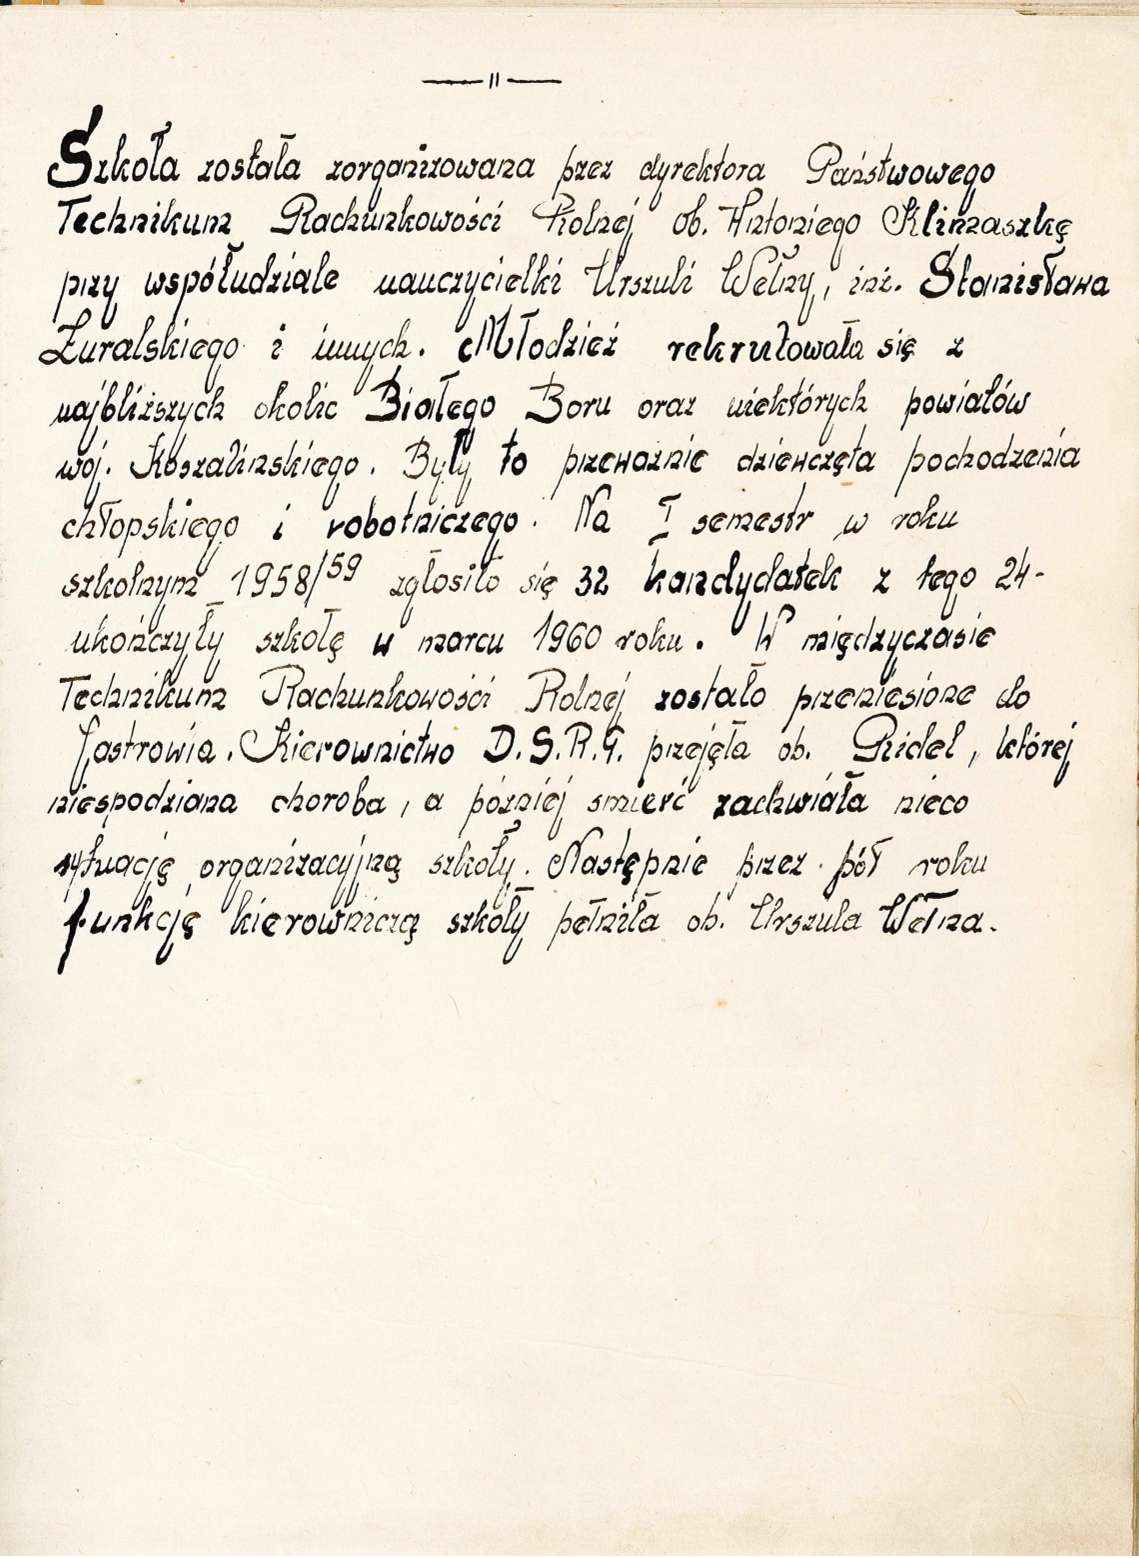 — II —
Szkoła została zorganizowana przez dyrektora Państwowego
Technikum Rachunkowości Rolnej ob. Antoniego Klimaszkę
przy współudziale nauczycielki Urszuli Wełny, inż. Stanisława
Żuralskiego i innych. Młodzież rekrutowała się z
najbliższych okolic Białego Boru oraz niektórych powiatów
woj. Koszalinskiego. Były to przeważnie dziewczęta pochodzenia
chłopskiego i robotniczego. Na I semestr w roku
szkolnym 1958/59 zgłosiło się 32 kandydatek z tego 24-
ukończyły szkołę w marcu 1960 roku. W międzyczasie
Technikum Rachunkowości Rolnej zostało przeniesione do
Jastrowia. Kierownictwo D.S.R.G. przejęła ob. Gridel, której
niespodziana choroba, a później smierć zachwiała nieco
sytuację organizacyjną szkoły. Następnie przez pół roku
funkcję kierowniczą szkoły pełniła ob. Urszula Wełna.